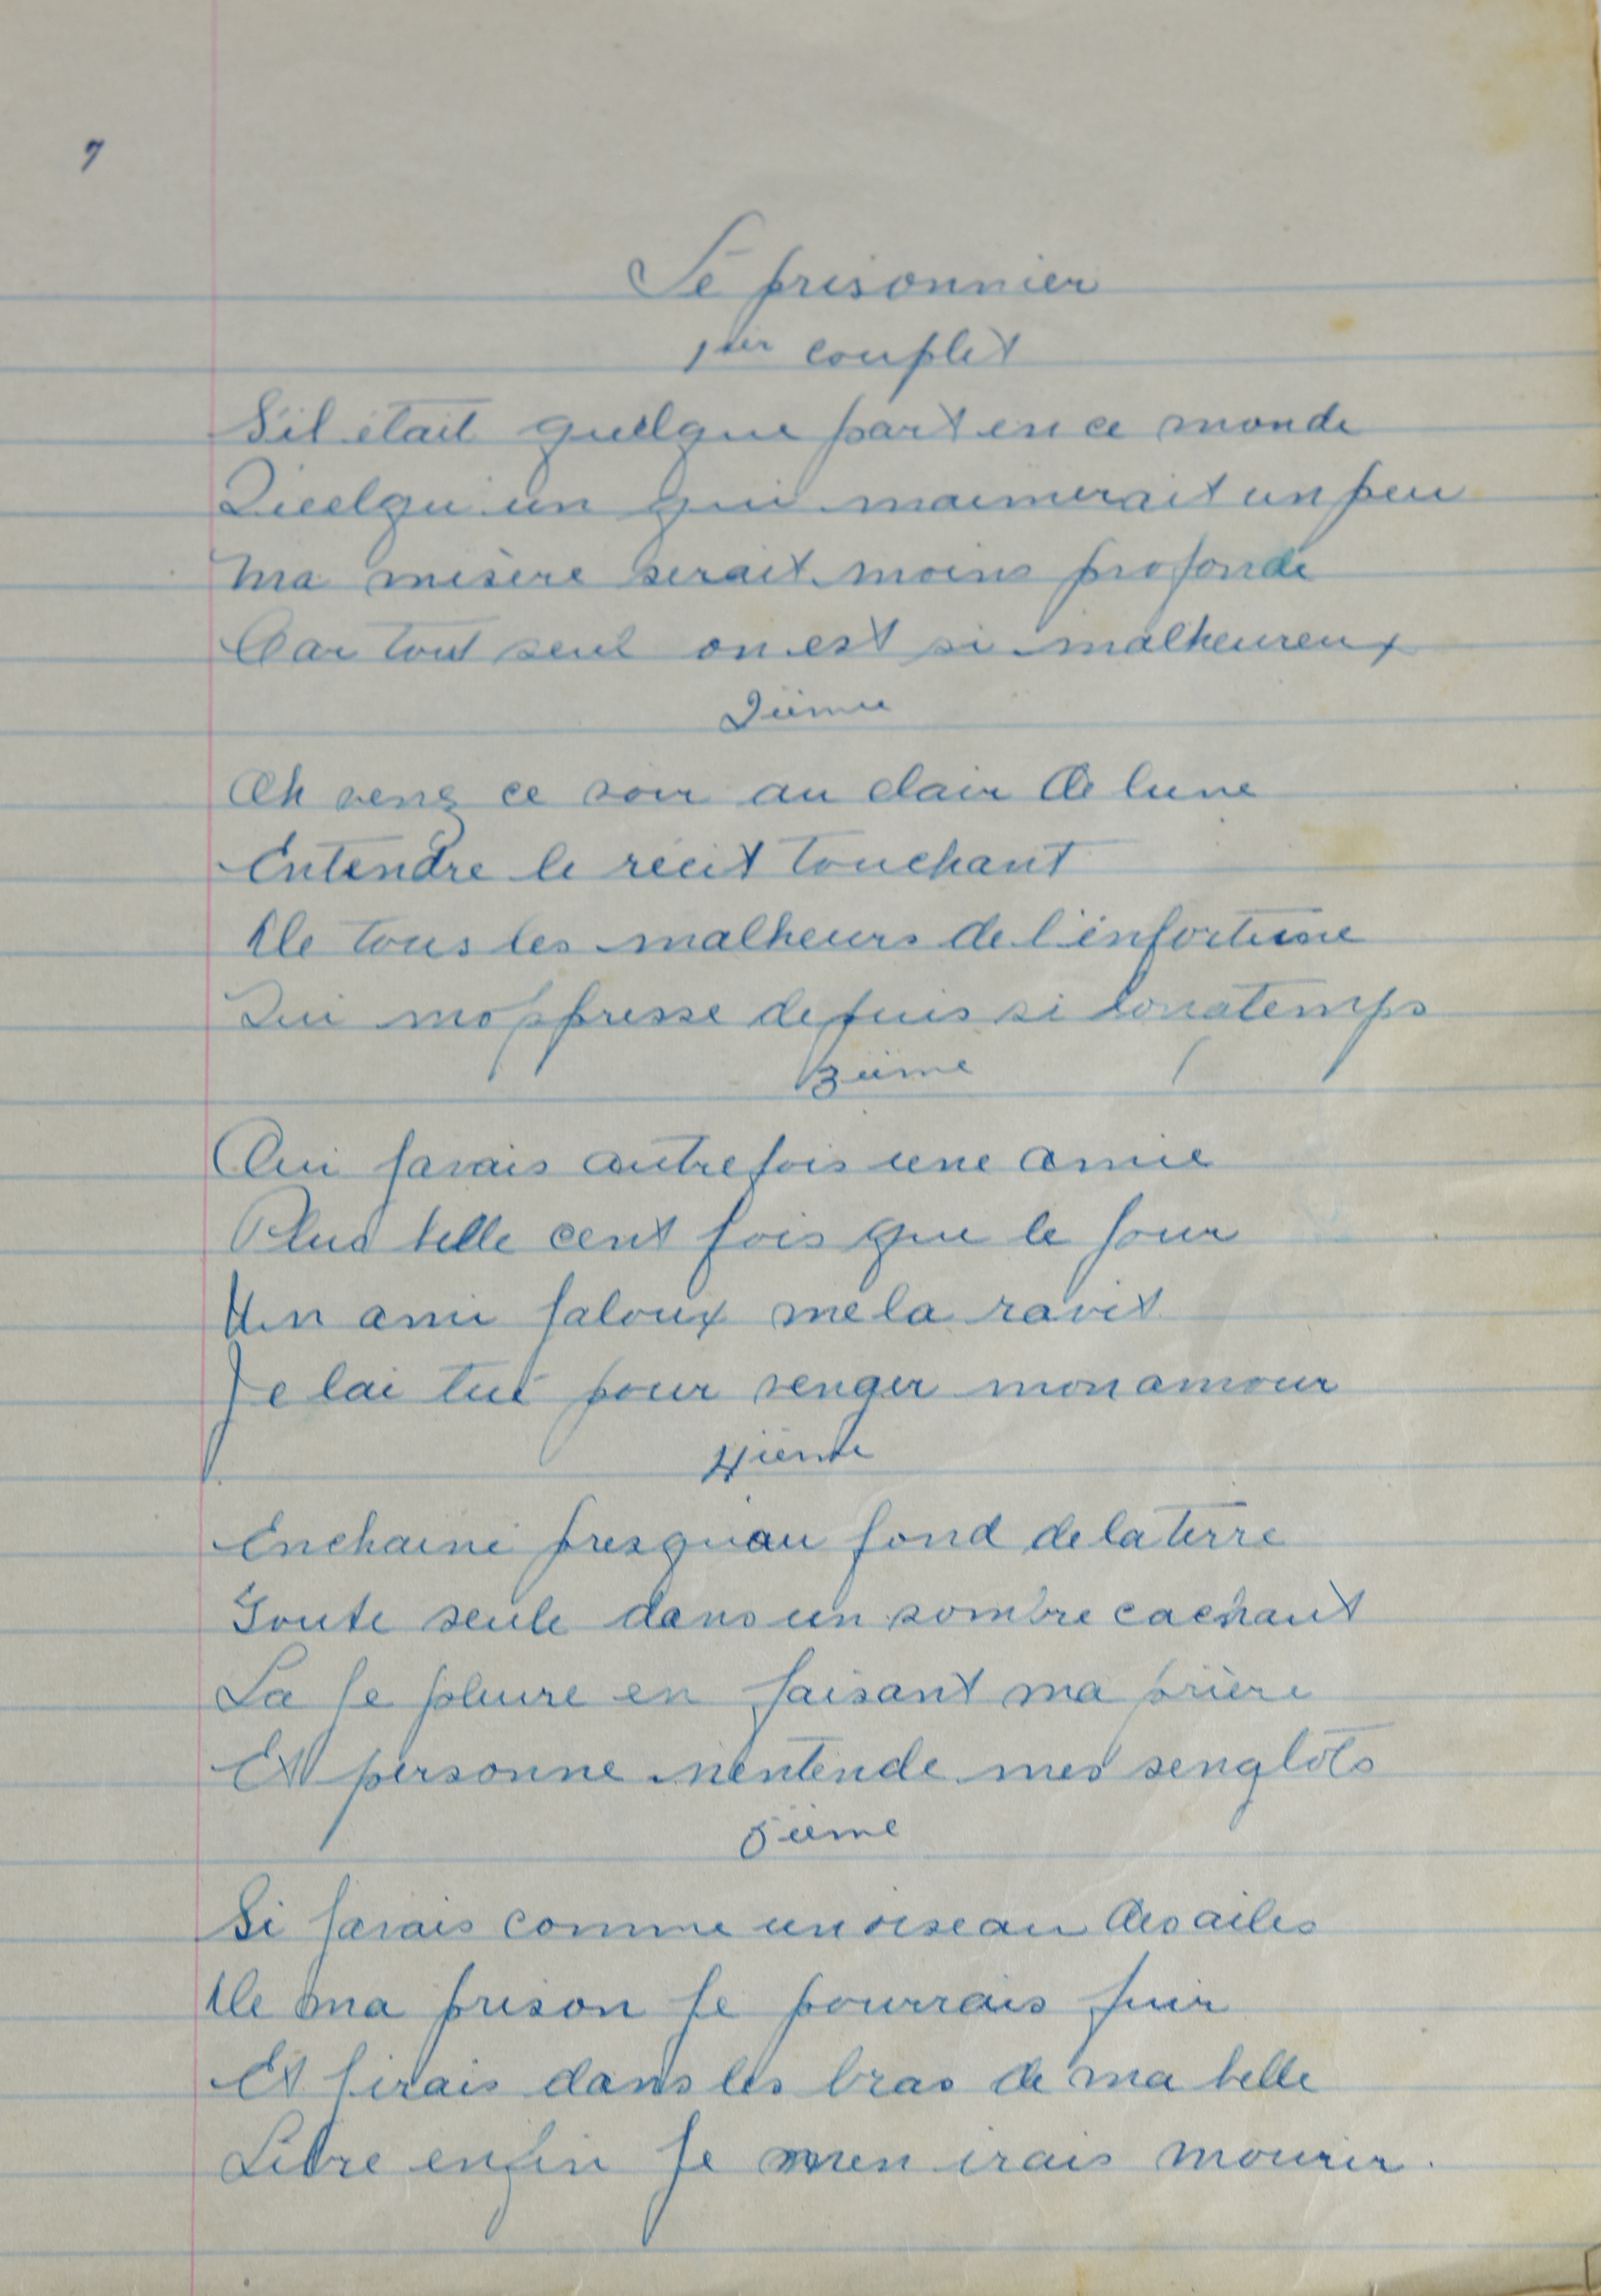 7
Le prisonnier
1ier couplet
S'il était quelque part en ce monde
Quelqu'un qui maimerait un peu
Ma misère serait moins profonde
Car tout seul on est si malheureux
2ième
Oh venez ce soir au clair de lune
Entendre le récit touchant
De tous les malheurs de l'enfortune
Qui moppresse depuis si longtemps
3ième
Oui javais autrefois une amie
Plus belle cent fois que le jour
Un ami jaloux me la ravit
Je lai tué pour venger mon amour
4ième
Enchainé presquau fond de la terre
Toute seule dans un sombre cachaut
La je pleure en faisant ma prière
Et personne nentende mes senglots
5ième
Si javais comme un oiseau des ailes
De ma prison je pourrais fuir
Et jirais dans les bras de ma belle
Libre enfin je men irais mourir.